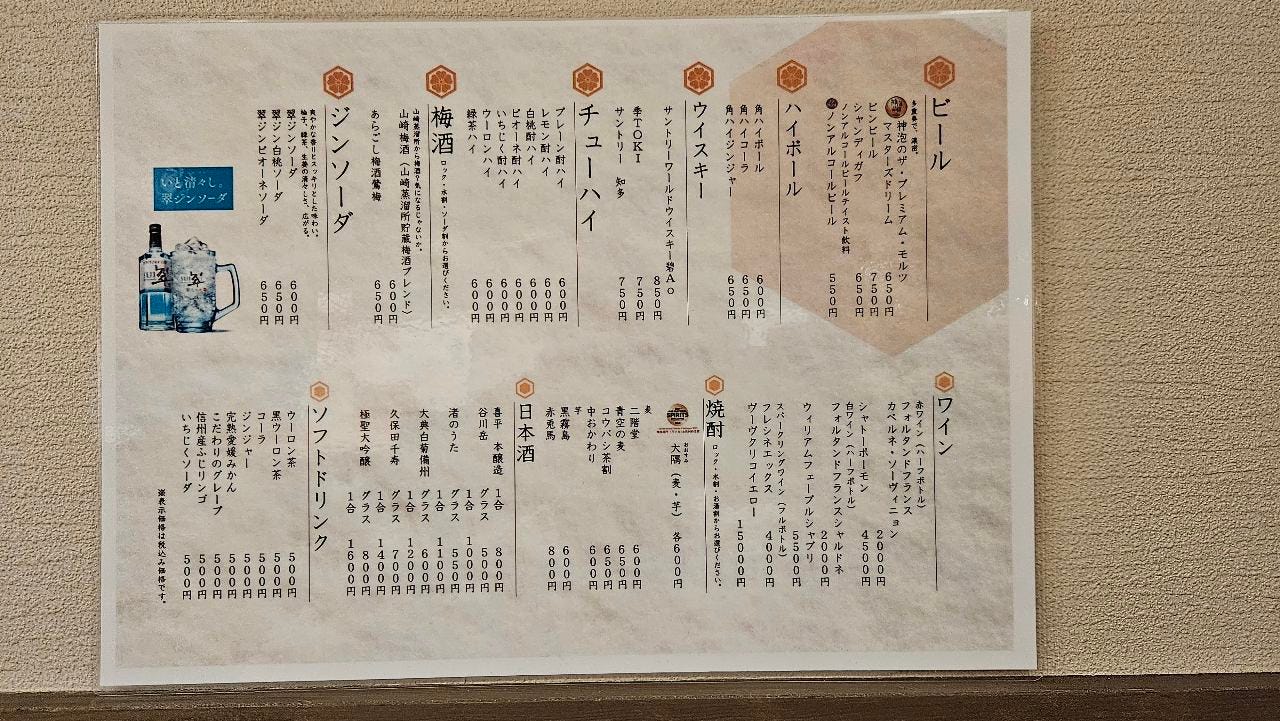 ビール
多重奏で、濃密。
神泡のザ・プレミアム・モルツ
マスターズドリーム 650円
ビンビール 750円
シャンディガフ 650円
ノンアルコールビールテイスト飲料
ノンアルコールビール 550円
ハイボール
角ハイボール 600円
角ハイコーラ 650円
角ハイジンジャー 650円
ウイスキー
サントリーワールドウイスキー碧Ao 850円
季TOKI 750円
サントリー 知多 750円
チューハイ
プレーン酎ハイ 600円
レモン酎ハイ 600円
白桃酎ハイ 600円
ピオーネ酎ハイ 600円
いちじく酎ハイ 600円
ウーロンハイ 600円
緑茶ハイ 600円
梅酒 ロック・水割・ソーダ割からお選びください。
山崎蒸溜所から梅酒?気になるじゃないか。
山崎梅酒(山崎蒸溜所貯蔵梅酒ブレンド) 600円
あらごし梅酒鶯梅 650円
ジンソーダ
爽やかな香りとスッキリとした味わい。
柚子、緑茶、生姜の清々しさ、広がる。
翠ジンソーダ 600円
翠ジン白桃ソーダ 650円
翠ジンピオーネソーダ 650円
いと清々し。
翠ジンソーダ
翠
ワイン
赤ワイン(ハーフボトル)
フォルタンドフランス
カベルネ・ソーヴィニョン 2000円
シャトーボーモン 4500円
白ワイン(ハーフボトル)
フォルタンドフランスシャルドネ 2000円
ウィリアムフェーブルシャブリ 5500円
スパークリングワイン(フルボトル)
フレシネエックス 4000円
ヴーヴクリコイエロー 15000円
焼酎 ロック・水割・お湯割からお選びください。
SPIRITS
おおすみ
大隅(麦・芋) 各600円
麦
二階堂 600円
青空の麦 650円
コウバシ茶割 650円
中おかわり 600円
芋
黒霧島 600円
赤兎馬 800円
日本酒
喜平 本醸造 1合 800円
谷川岳 グラス 500円
1合 1000円
渚のうた グラス 550円
1合 1100円
大典白菊備州 グラス 600円
1合 1200円
久保田千寿 グラス 700円
1合 1400円
極聖大吟醸 グラス 800円
1合 1600円
ソフトドリンク
ウーロン茶 500円
黒ウーロン茶 500円
コーラ 500円
ジンジャー 500円
完熟愛媛みかん 500円
こだわりのグレープ 500円
信州産ふじリンゴ 500円
いちじくソーダ 500円
※表示価格は税込み価格です。